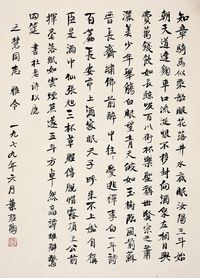 知章騎馬似乘船眼花落井水底眠汝陽三斗始
朝天道逢麴車口流涎恨不移封向酒泉左相日興
費萬錢飲如長鯨吸百川銜杯樂聖稱世賢宗之蕭
灑美少年舉觴白眼望青天皎如玉樹臨風前蘇
晉長齋繡佛前醉中往往愛逃禪李白一斗詩
百篇長安市上酒家眠天子呼來不上船自稱
臣是酒中仙張旭三杯草聖傳脫帽露頂王公前
揮毫落紙如雲煙焦遂五斗方卓然高談雄辯驚
四筵 書杜老詩以應
慧同志 雅令
一九七九年六月 葉聖陶